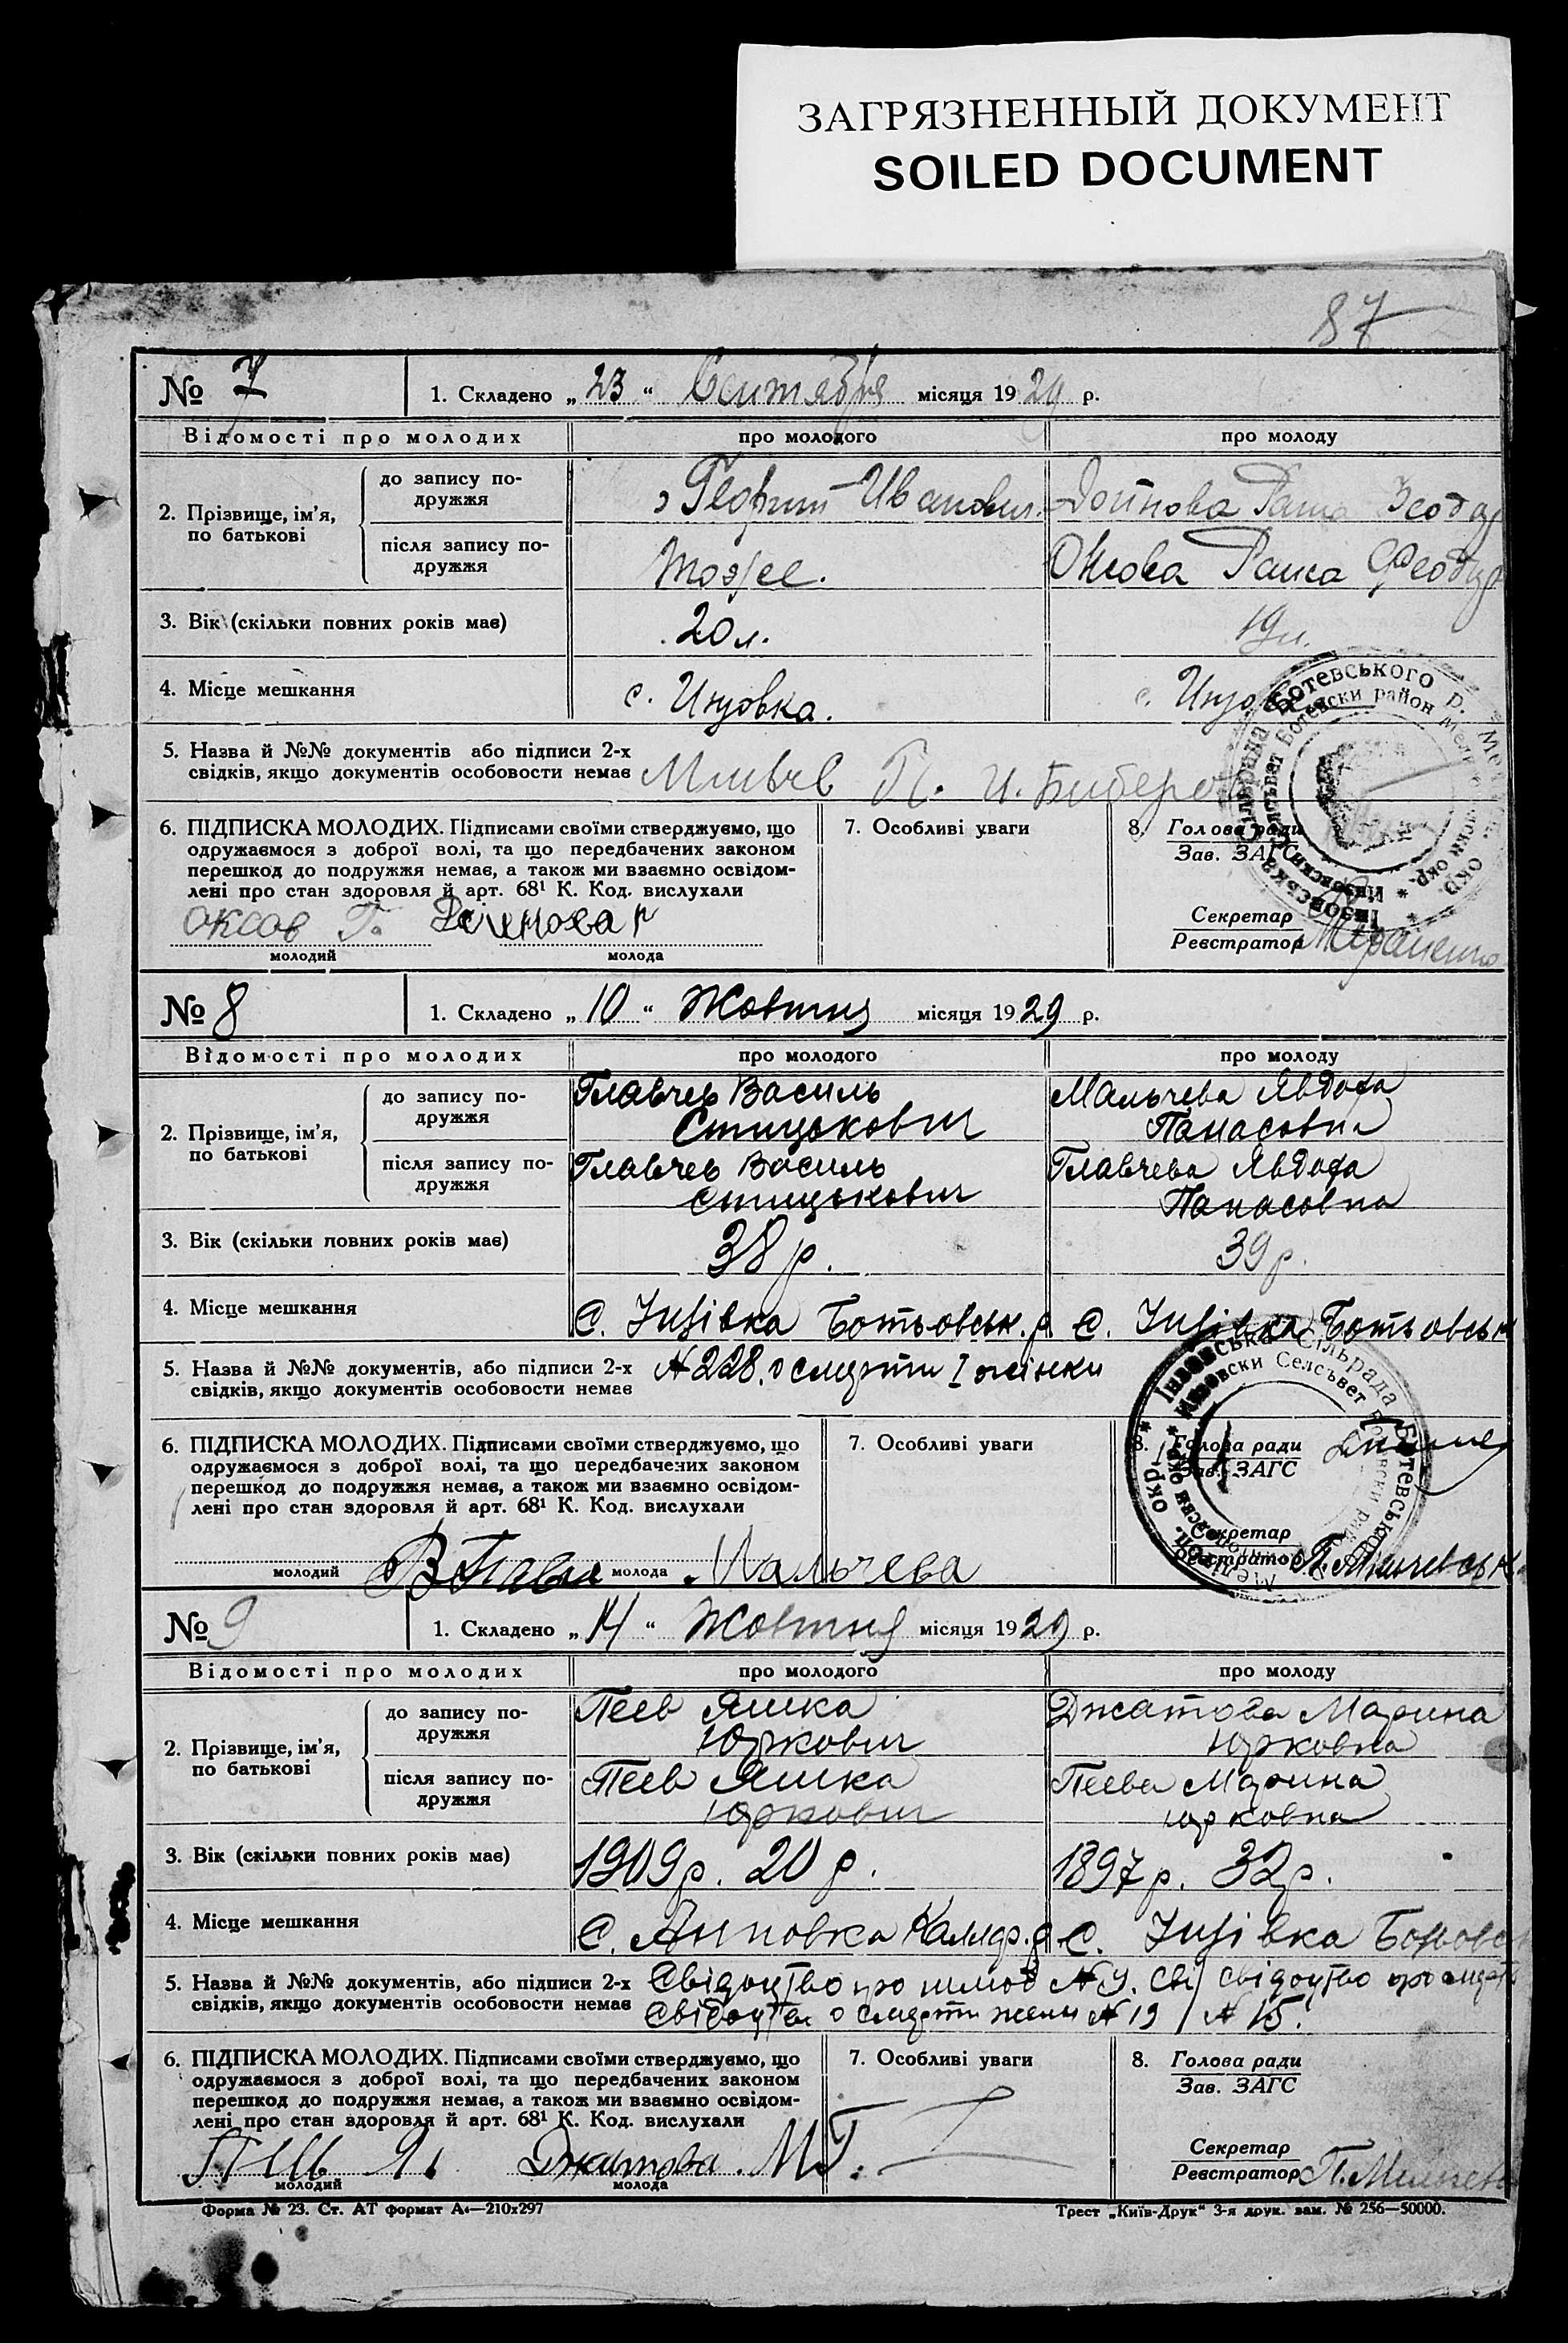 ЗАГРЯЗНЕННЫЙ ДОКУМЕНТ
SOILED DOCUMENT
87
№ 7 1. Складено „ 23 “ Сентября місяця 19 29 р.
Відомості про молодих про молодого про молоду
2. Прізвище, ім'я, по батькові
до запису подружжя Георгий Иванович Дойнова Раша Феодор
після запису по-дружжя тоже. Оксова Раиса Феодор
3. Вік (скільки повних років має) 20 л. 19 л.
4. Місце мешкання с. Инзовка. с. Инзовка
5. Назва й №№ документів або підписи 2-х
свідків, якщо документів особовости немає П. И.
6. ПІДПИСКА МОЛОДИХ. Підписами своїми стверджуємо, що 7. Особливі уваги 8. Голова ради
одружаємося з доброї волі, та що передбачених законом Зав. ЗАГС
перешкод до подружжя немає, а також ми взаємно освідом-
лені про стан здоровля й арт. 68¹ К. Код. вислухали
Оксов Г. Секретар
молодий молода Реєстратор
Інзовська Сільрада Ботевського р. Мел. окр.
№ 8 1. Складено „ 10 “ Жовтня місяця 19 29 р.
Відомості про молодих про молодого про молоду
до запису по- Главчев Василь Мальчева Явдоха
дружжя Стицькович Панасовна
2. Прізвище, ім'я,
по батькові
після запису по- Главчев Василь Главчева Явдоха
дружжя Стицькович Панасовна
3. Вік (скільки повних років має) 38 р. 39 р.
4. Місце мешкання С. Інзівка Ботьовськ. р. С. Інзівка Ботьовськ
5. Назва й №№ документів, або підписи 2-х № 228. о смерти І жінки
свідків, якщо документів особовости немає
6. ПІДПИСКА МОЛОДИХ. Підписами своїми стверджуємо, що 7. Особливі уваги 8. Голова ради
одружаємося з доброї волі, та що передбачених законом Зав. ЗАГС
перешкод до подружжя немає, а також ми взаємно освідом-
лені про стан здоровля й арт. 68¹ К. Код. вислухали
Секретар
Реєстратор
молодий молода Мальчева
Інзовська Сільрада Ботевського
Инзовски Селсъвет Ботевски район
№ 9 1. Складено „ 14 “ Жовтня місяця 19 29 р.
Відомості про молодих про молодого про молоду
до запису по- Пеев Яшка Джатова Марина
дружжя Юркович Юрковна
2. Прізвище, ім'я,
по батькові
після запису по- Пеев Яшка Пеева Марина
дружжя Юркович Юрковна
3. Вік (скільки повних років має) 1909 р. 20 р. 1897 р. 32 р.
4. Місце мешкання С. Анновка С. Інзівка
5. Назва й №№ документів, або підписи 2-х Свідоцтво про шлюб № 9. Свідоцтво про смерть
свідків, якщо документів особовости немає о смерти жени № 19 / № 15.
6. ПІДПИСКА МОЛОДИХ. Підписами своїми стверджуємо, що 7. Особливі уваги 8. Голова ради
одружаємося з доброї волі, та що передбачених законом Зав. ЗАГС
перешкод до подружжя немає, а також ми взаємно освідом-
лені про стан здоровля й арт. 68¹ К. Код. вислухали
Пеев Я. Джатова. М Секретар
молодий молода Реєстратор
Форма № 23. Ст. АТ формат А₄—210х297 Трест „Київ-Друк“ 3-я друк. зам. № 256—50000.